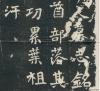 銘
首部落其
功累葉祖
汗